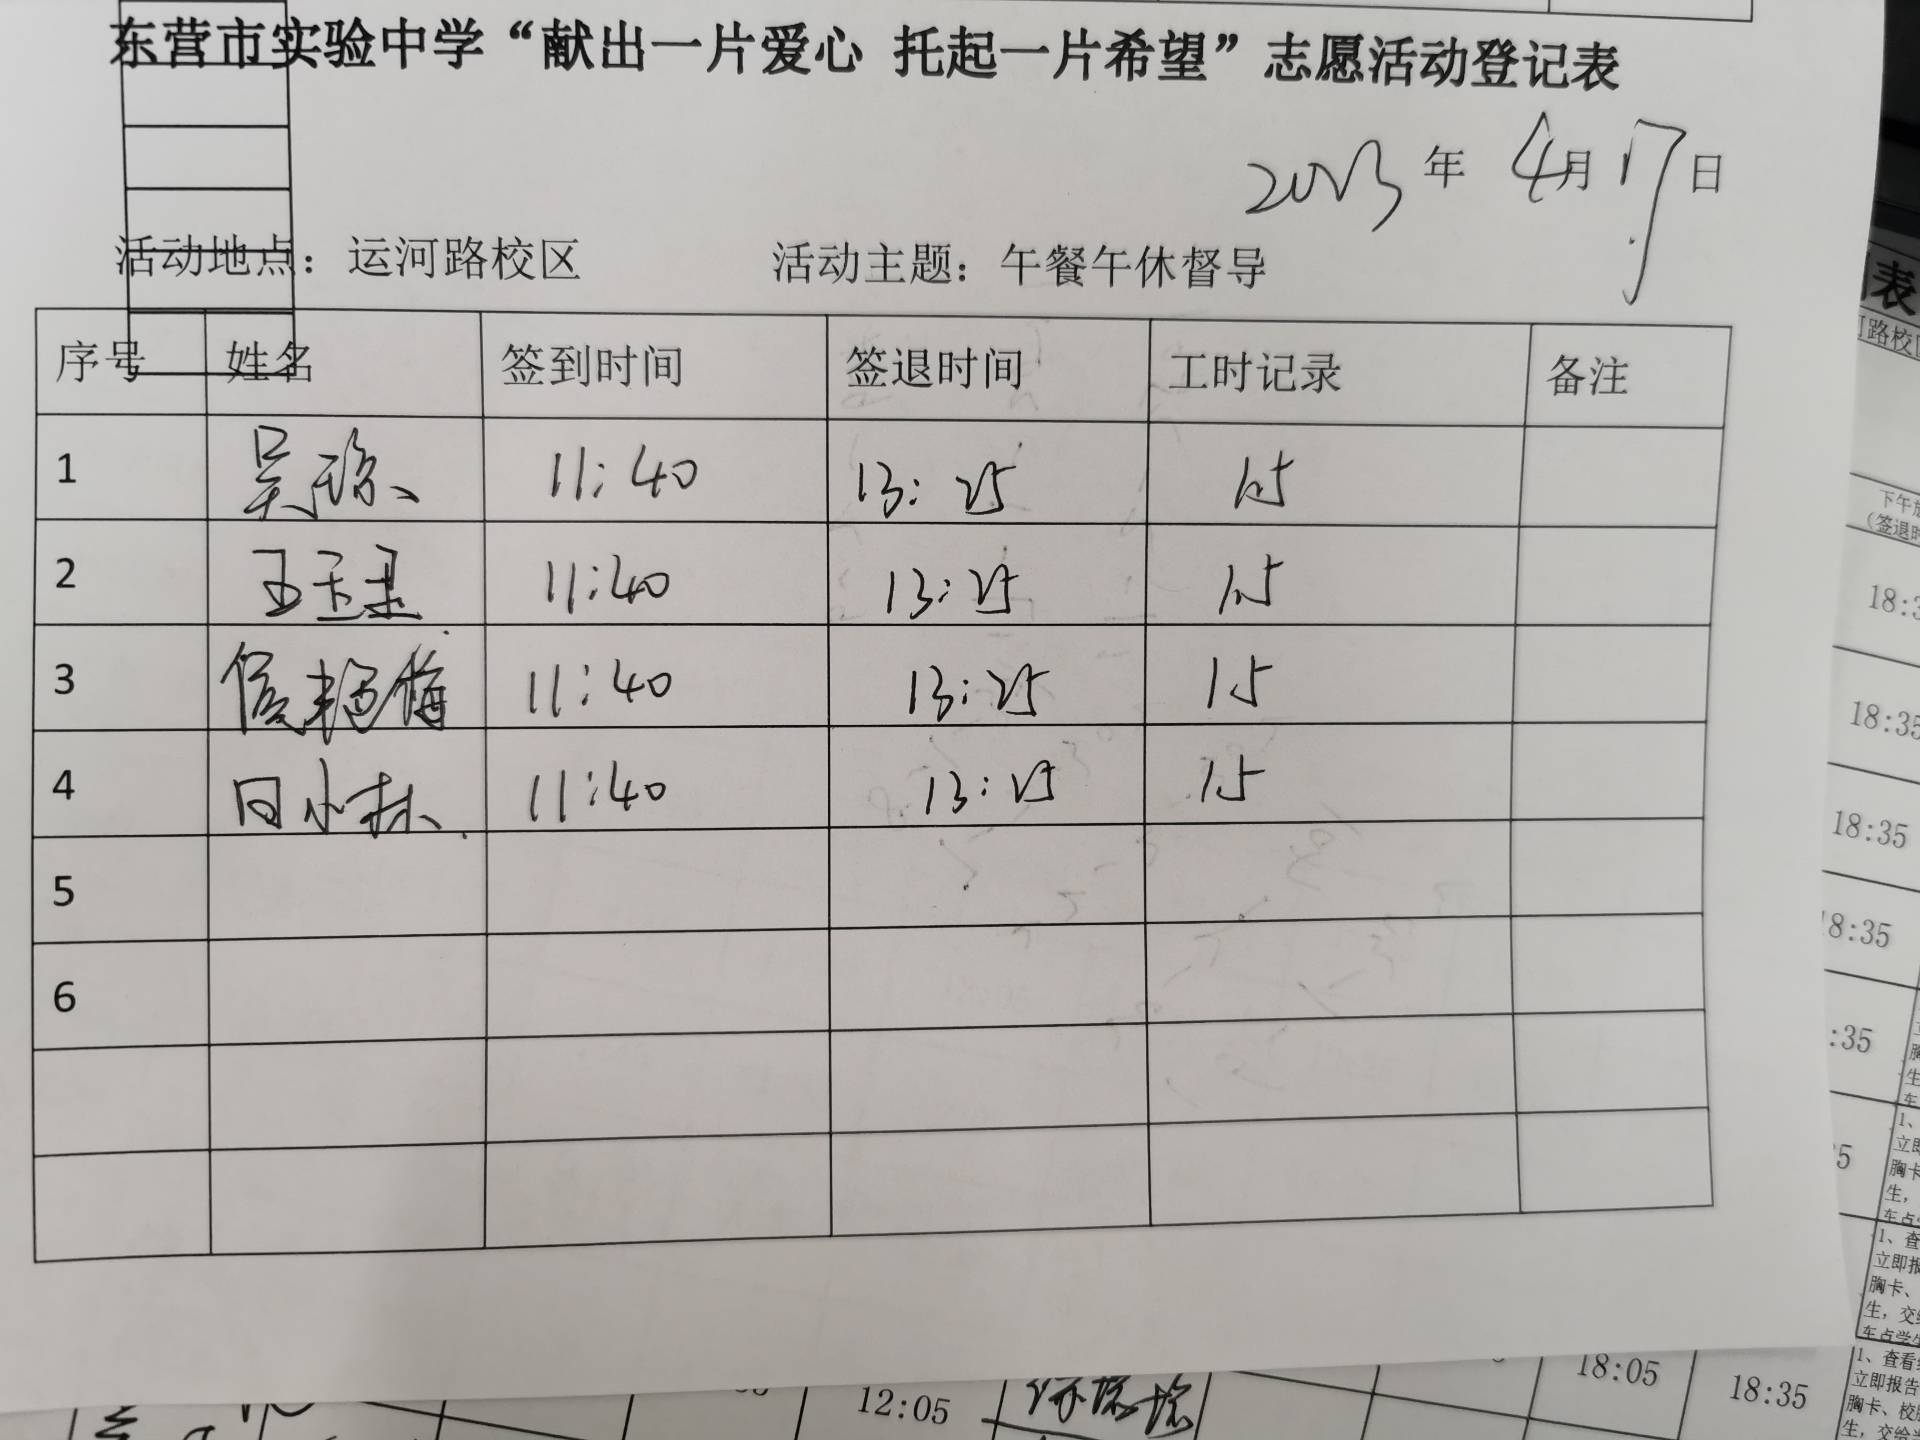 东营市实验中学“献出一片爱心 托起一片希望”志愿活动登记表
2023年 4月17日
活动地点：运河路校区 活动主题：午餐午休督导
序号 姓名 签到时间 签退时间 工时记录 备注
1 吴琼 11:40 13:25 1.5
2 王玉 11:40 13:25 1.5
3 侯艳梅 11:40 13:25 1.5
4 田小林 11:40 13:25 1.5
5
6
表
路校区
下午放
（签退时
18:3
18:35
18:35
18:35
:35
5
1、
立即
胸卡
生，
车点学
1、查
立即报
胸卡、
生，交给
车点学生
12:05
18:05
18:35
1、查看
立即报告
胸卡、校服
生，交给